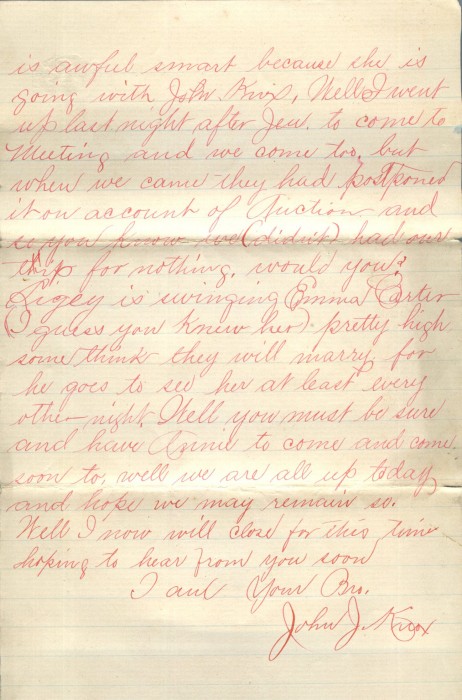 is awful smart because she is
going with John Knox, Well I went
up last night after Jen. to come to
Meeting and we come too, but
when we came they had postponed
it on account of Auction and
so you know we (didnt) had our
trip for nothing, would you?
Ligey is swinging Emma Carter
(I guess you knew her) pretty high
some think they will marry, for
he goes to see her at least every
other night Well you must be sure
and have Annie to come and come
soon to, well we are all up today,
and hope we may remain so.
Well I now will close for this time
hoping to hear from you soon
I am Your Bro.
John J. Knox